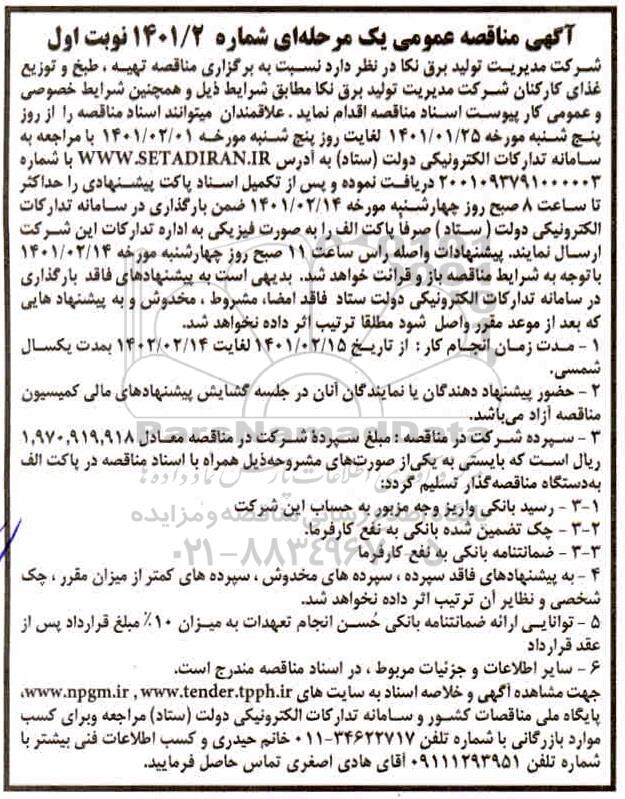 آگهی مناقصه عمومی یک مرحله‌ای شماره ۱۴۰۱/۲ نوبت اول
شرکت مدیریت تولید برق نکا در نظر دارد نسبت به برگزاری مناقصه تهیه ، طبخ و توزیع
غذای کارکنان شرکت مدیریت تولید برق نکا مطابق شرایط ذیل و همچنین شرایط خصوصی
و عمومی کار پیوست اسناد مناقصه اقدام نماید . علاقمندان میتوانند اسناد مناقصه را از روز
پنج شنبه مورخه ۱۴۰۱/۰۱/۲۵ لغایت روز پنج شنبه مورخه ۱۴۰۱/۰۲/۰۱ با مراجعه به
سامانه تدارکات الکترونیکی دولت (ستاد) به آدرس WWW.SETADIRAN.IR با شماره
۲۰۰۱۰۹۳۷۹۱۰۰۰۰۰۳ دریافت نموده و پس از تکمیل اسناد پاکت پیشنهادی را حداکثر
تا ساعت ۸ صبح روز چهارشنبه مورخه ۱۴۰۱/۰۲/۱۴ ضمن بارگذاری در سامانه تدارکات
الکترونیکی دولت ( ستاد ) صرفاً پاکت الف را به صورت فیزیکی به اداره تدارکات این شرکت
ارسال نمایند. پیشنهادات واصله راس ساعت ۱۱ صبح روز چهارشنبه مورخه ۱۴۰۱/۰۲/۱۴
باتوجه به شرایط مناقصه باز و قرائت خواهد شد. بدیهی است به پیشنهادهای فاقد بارگذاری
در سامانه تدارکات الکترونیکی دولت ستاد فاقد امضا، مشروط ، مخدوش و به پیشنهاد هایی
که بعد از موعد مقرر واصل شود مطلقا ترتیب اثر داده نخواهد شد.
۱ - مدت زمان انجام کار : از تاریخ ۱۴۰۱/۰۲/۱۵ لغایت ۱۴۰۲/۰۲/۱۴ بمدت یکسال
شمسی.
۲ - حضور پیشنهاد دهندگان یا نمایندگان آنان در جلسه گشایش پیشنهادهای مالی کمیسیون
مناقصه آزاد می‌باشد.
۳ - سپرده شرکت در مناقصه : مبلغ سپرده شرکت در مناقصه معادل ۱,۹۷۰,۹۱۹,۹۱۸
ریال است که بایستی به یکی از صورت‌های مشروحه‌ذیل همراه با اسناد مناقصه در پاکت الف
به‌دستگاه مناقصه‌گذار تسلیم گردد:
۳-۱ - رسید بانکی واریز وجه مزبور به حساب این شرکت
۳-۲ - چک تضمین شده بانکی به نفع کارفرما.
۳-۳ - ضمانتنامه بانکی به نفع کارفرما
۴ - به پیشنهادهای فاقد سپرده ، سپرده های مخدوش ، سپرده های کمتر از میزان مقرر ، چک
شخصی و نظایر آن ترتیب اثر داده نخواهد شد.
۵ - توانایی ارائه ضمانتنامه بانکی حُسن انجام تعهدات به میزان ۱۰٪ مبلغ قرارداد پس از
عقد قرارداد
۶ - سایر اطلاعات و جزئیات مربوط ، در اسناد مناقصه مندرج است.
جهت مشاهده آگهی و خلاصه اسناد به سایت های www.npgm.ir , www.tender.tpph.ir،
پایگاه ملی مناقصات کشور و سامانه تدارکات الکترونیکی دولت (ستاد) مراجعه وبرای کسب
موارد بازرگانی با شماره تلفن ۳۴۶۲۲۷۱۷-۰۱۱ خانم حیدری و کسب اطلاعات فنی بیشتر با
شماره تلفن ۰۹۱۱۱۲۹۳۹۵۱ آقای هادی اصغری تماس حاصل فرمایید.
ParsNamadData
۰۲۱-۸۸۳۴۹۶۷۰-۵